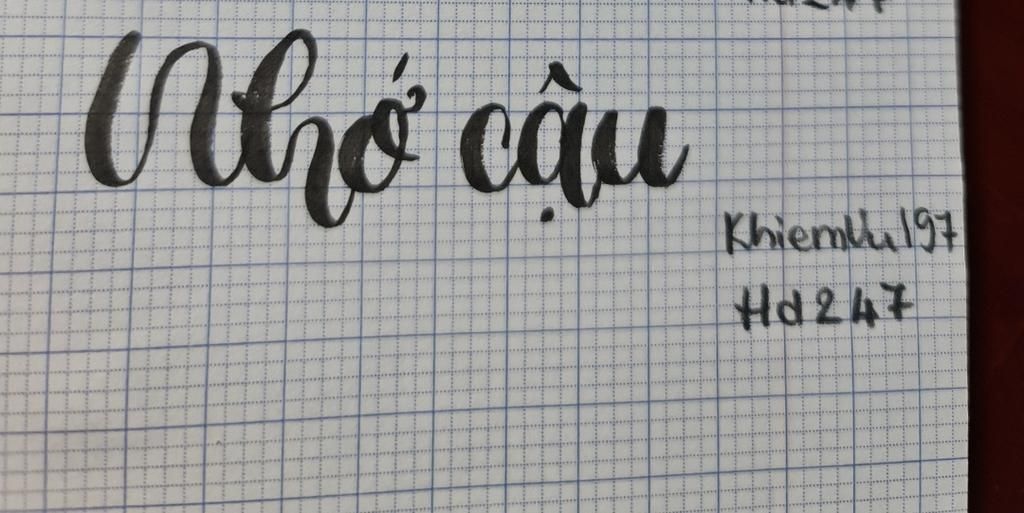 Nhớ cậu
KhiemVu197
Hd247